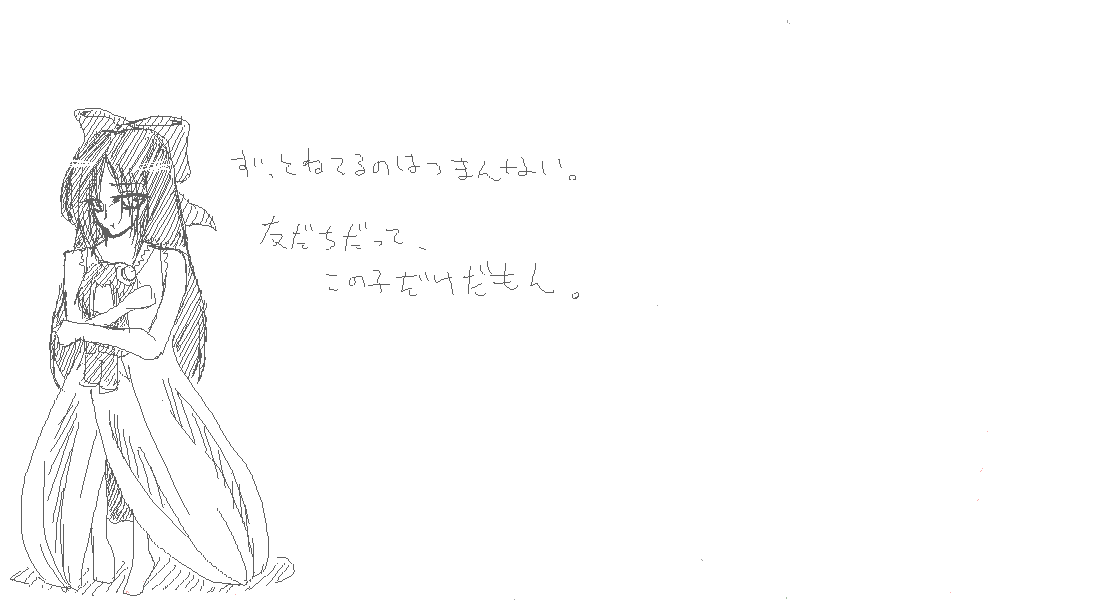 ずっとねてるのはつまんない。
友だちだって、
この子だけだもん。